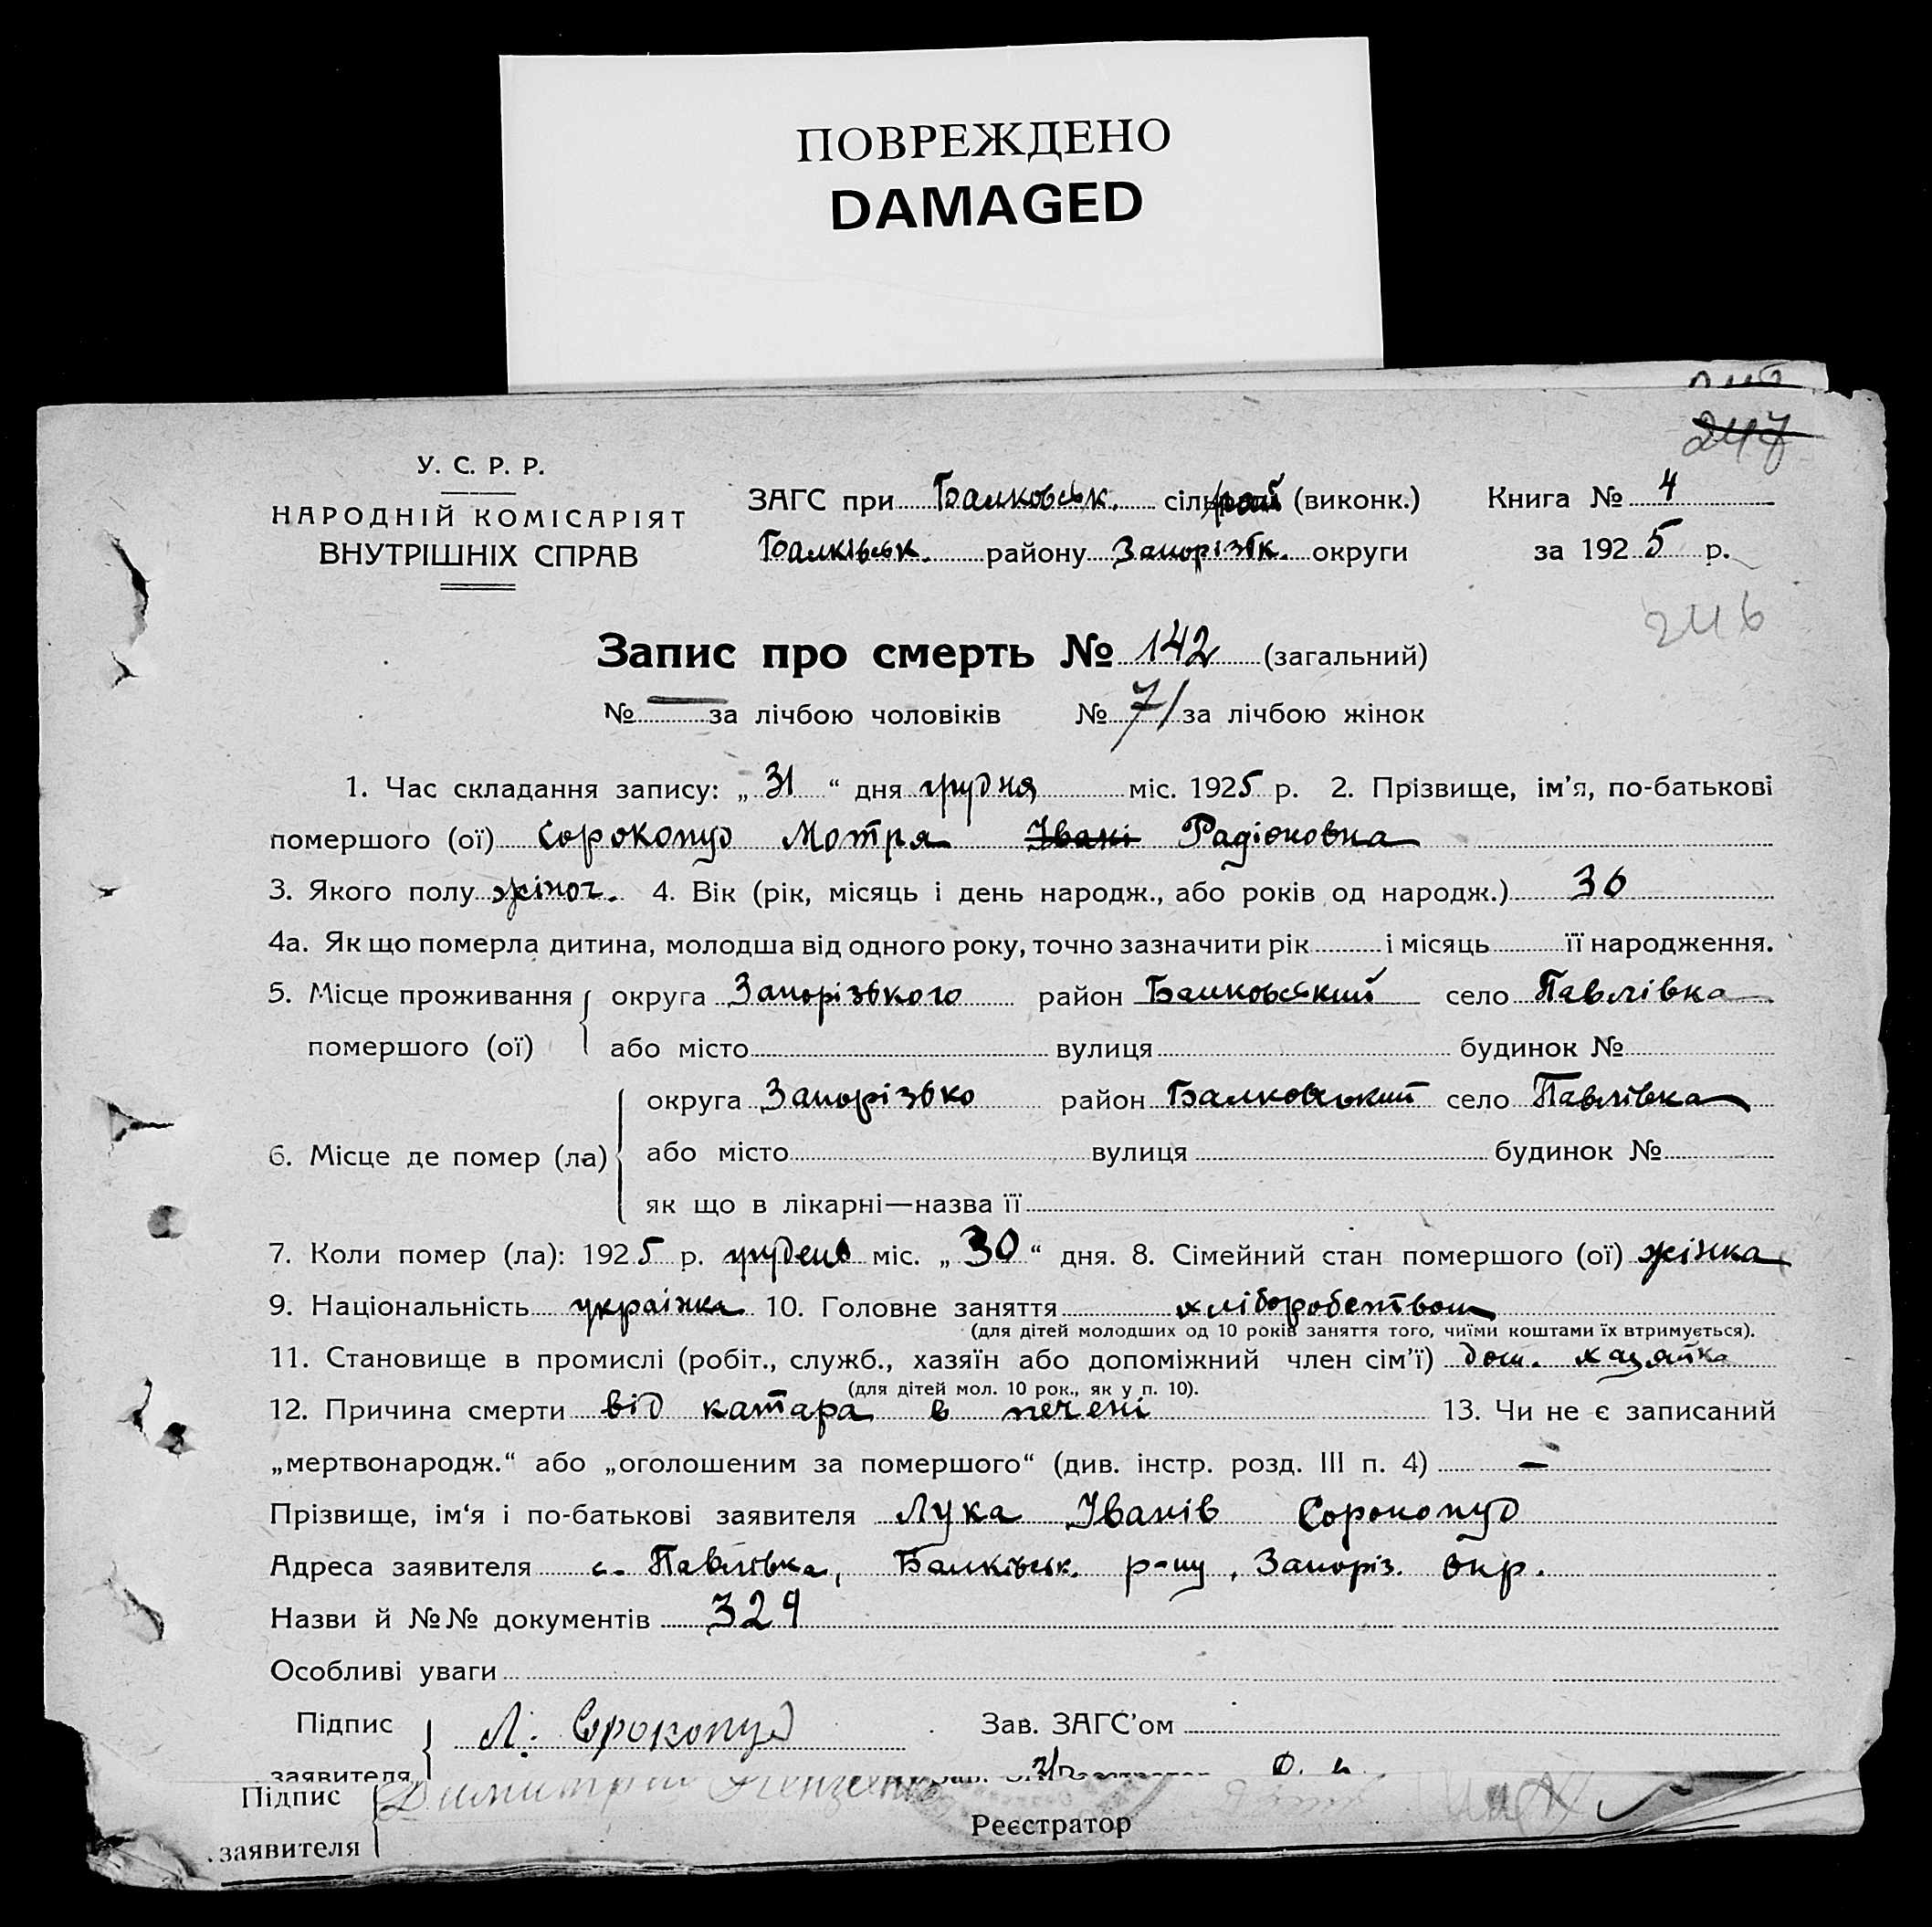 ПОВРЕЖДЕНО
DAMAGED
247
У. С. Р. Р.
НАРОДНІЙ КОМІСАРІЯТ
ВНУТРІШНІХ СПРАВ
ЗАГС при Балковськ. рай (виконк.) Книга № 4
Балківськ. району Запорізьк. округи за 1925 р.
246
Запис про смерть № 142 (загальний)
№ — за лічбою чоловіків № 71 за лічбою жінок
1. Час складання запису: „31“ дня грудня міс. 1925 р. 2. Прізвище, ім'я, по-батькові
помершого (ої) Сорокопуд Мотря Івані Радіоновна
3. Якого полу жіноч. 4. Вік (рік, місяць і день народж., або років од народж.) 36
4а. Як що померла дитина, молодша від одного року, точно зазначити рік і місяць її народження.
5. Місце проживання округа Запорізького район Балковський село Павлівка
помершого (ої) або місто вулиця будинок №
округа Запорізько район Балковський село Павлівка
6. Місце де помер (ла) або місто вулиця будинок №
як що в лікарні—назва її
7. Коли помер (ла): 1925 р. грудень міс. „30“ дня. 8. Сімейний стан помершого (ої) жінка
9. Національність українка 10. Головне заняття хліборобством
(для дітей молодших од 10 років заняття того, чиїми коштами їх втримується).
11. Становище в промислі (робіт., служб., хазяїн або допоміжний член сім'ї) дом. хазяйка
(для дітей мол. 10 рок., як у п. 10).
12. Причина смерти від катара в печені 13. Чи не є записаний
„мертвонародж.“ або „оголошеним за помершого“ (див. інстр. розд. III п. 4) —
Прізвище, ім‘я і по-батькові заявителя Лука Іванів Сорокопуд
Адреса заявителя с. Павлівка, Балківськ. р-ну, Запоріз. окр.
Назви й №№ документів 329
Особливі уваги
Підпис Л. Сорокопуд Зав. ЗАГС'ом
заявителя
Підпис Димитрий
Реєстратор
заявителя